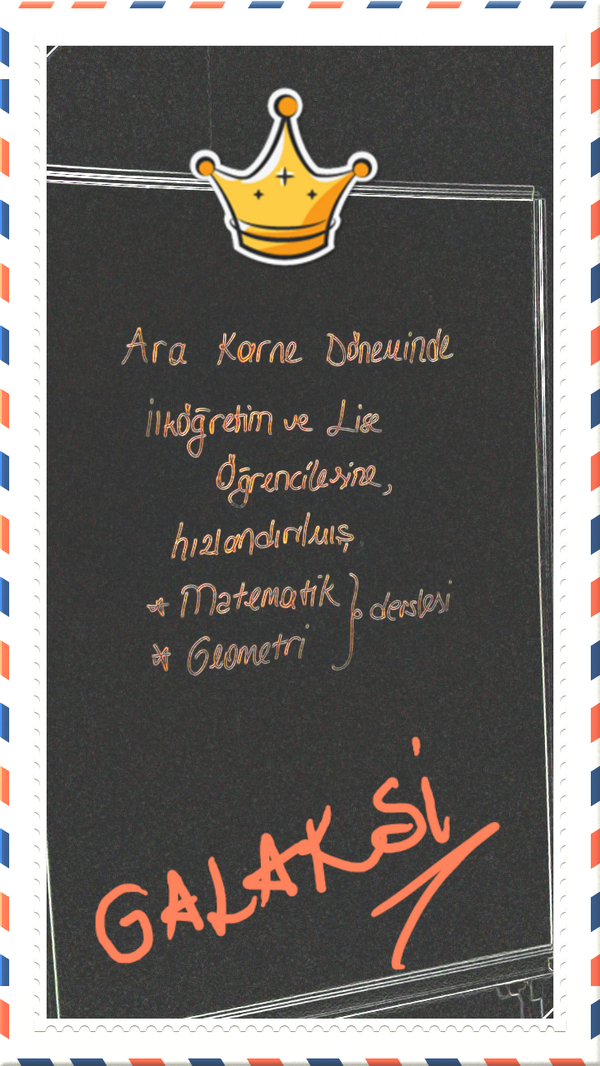 Ara Karne Döneminde
İlköğretim ve Lise
Öğrencilerine,
hızlandırılmış
* Matematik } dersleri
* Geometri
GALAKSİ